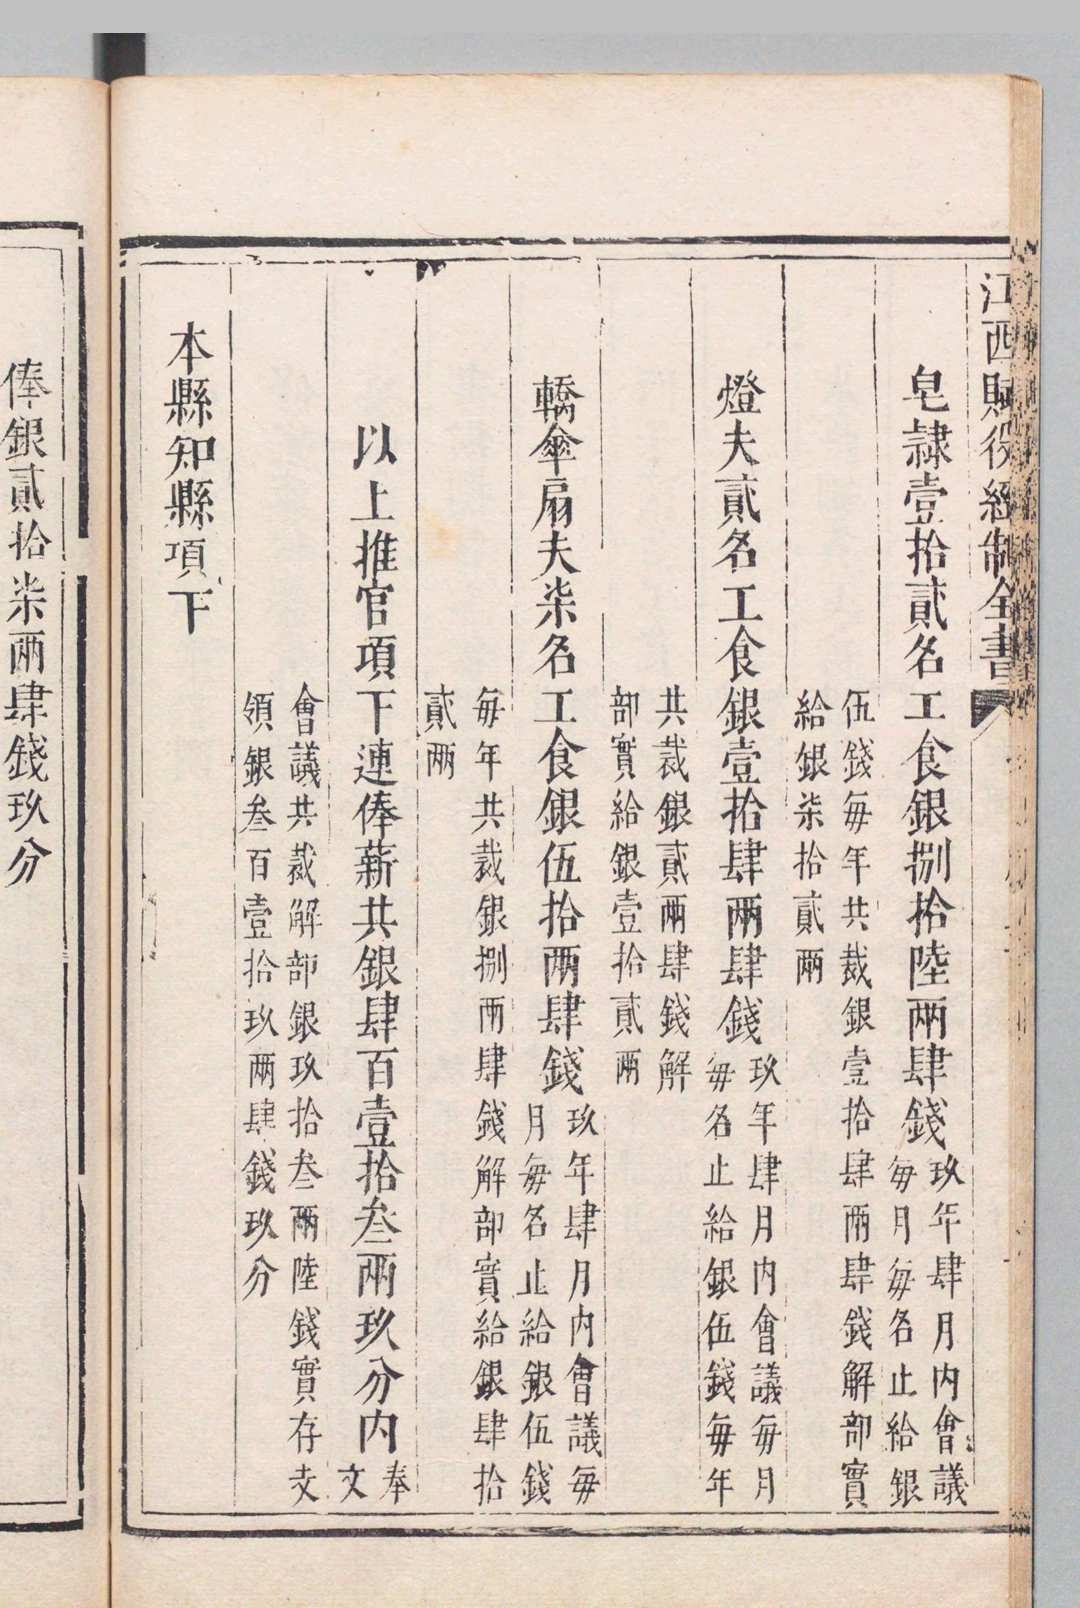 江西賦役經制全書
皂隸壹拾貳名工食銀捌拾陸兩肆錢玖年肆月內會議
每月每名止給銀
伍錢每年共裁銀壹拾肆兩肆錢解部實
給銀柒拾貳兩
燈夫貳名工食銀壹拾肆兩肆錢玖年肆月內會議每月
每名止給銀伍錢每年
共裁銀貳兩肆錢解
部實給銀壹拾貳兩
轎傘扇夫柒名工食銀伍拾兩肆錢玖年肆月內會議每
月每名止給銀伍錢
每年共裁銀捌兩肆錢解部實給銀肆拾
貳兩
以上推官項下連俸薪共銀肆百壹拾叁兩玖分內奉
文
會議共裁解部銀玖拾叁兩陸錢實存支
領銀叁百壹拾玖兩肆錢玖分
本縣知縣項下
俸銀貳拾柒兩肆錢玖分